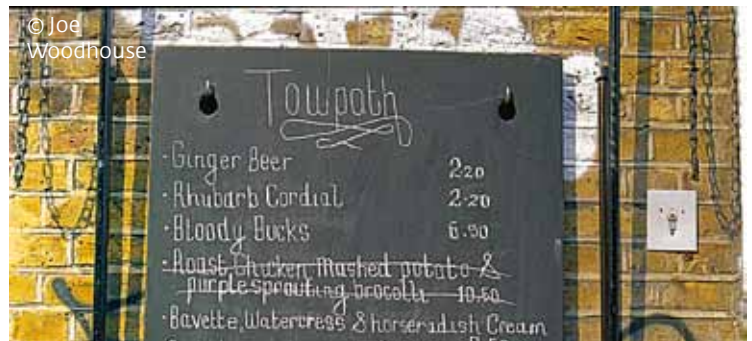 © Joe
Woodhouse
Towpath
· Ginger Beer 2·20
· Rhubarb Cordial 2·20
· Bloody Bucks 6.50
· Roast, Chicken, Mashed potato &
purple sprouting brocolli 10.50
· Bavette, Watercress & horseradish Cream